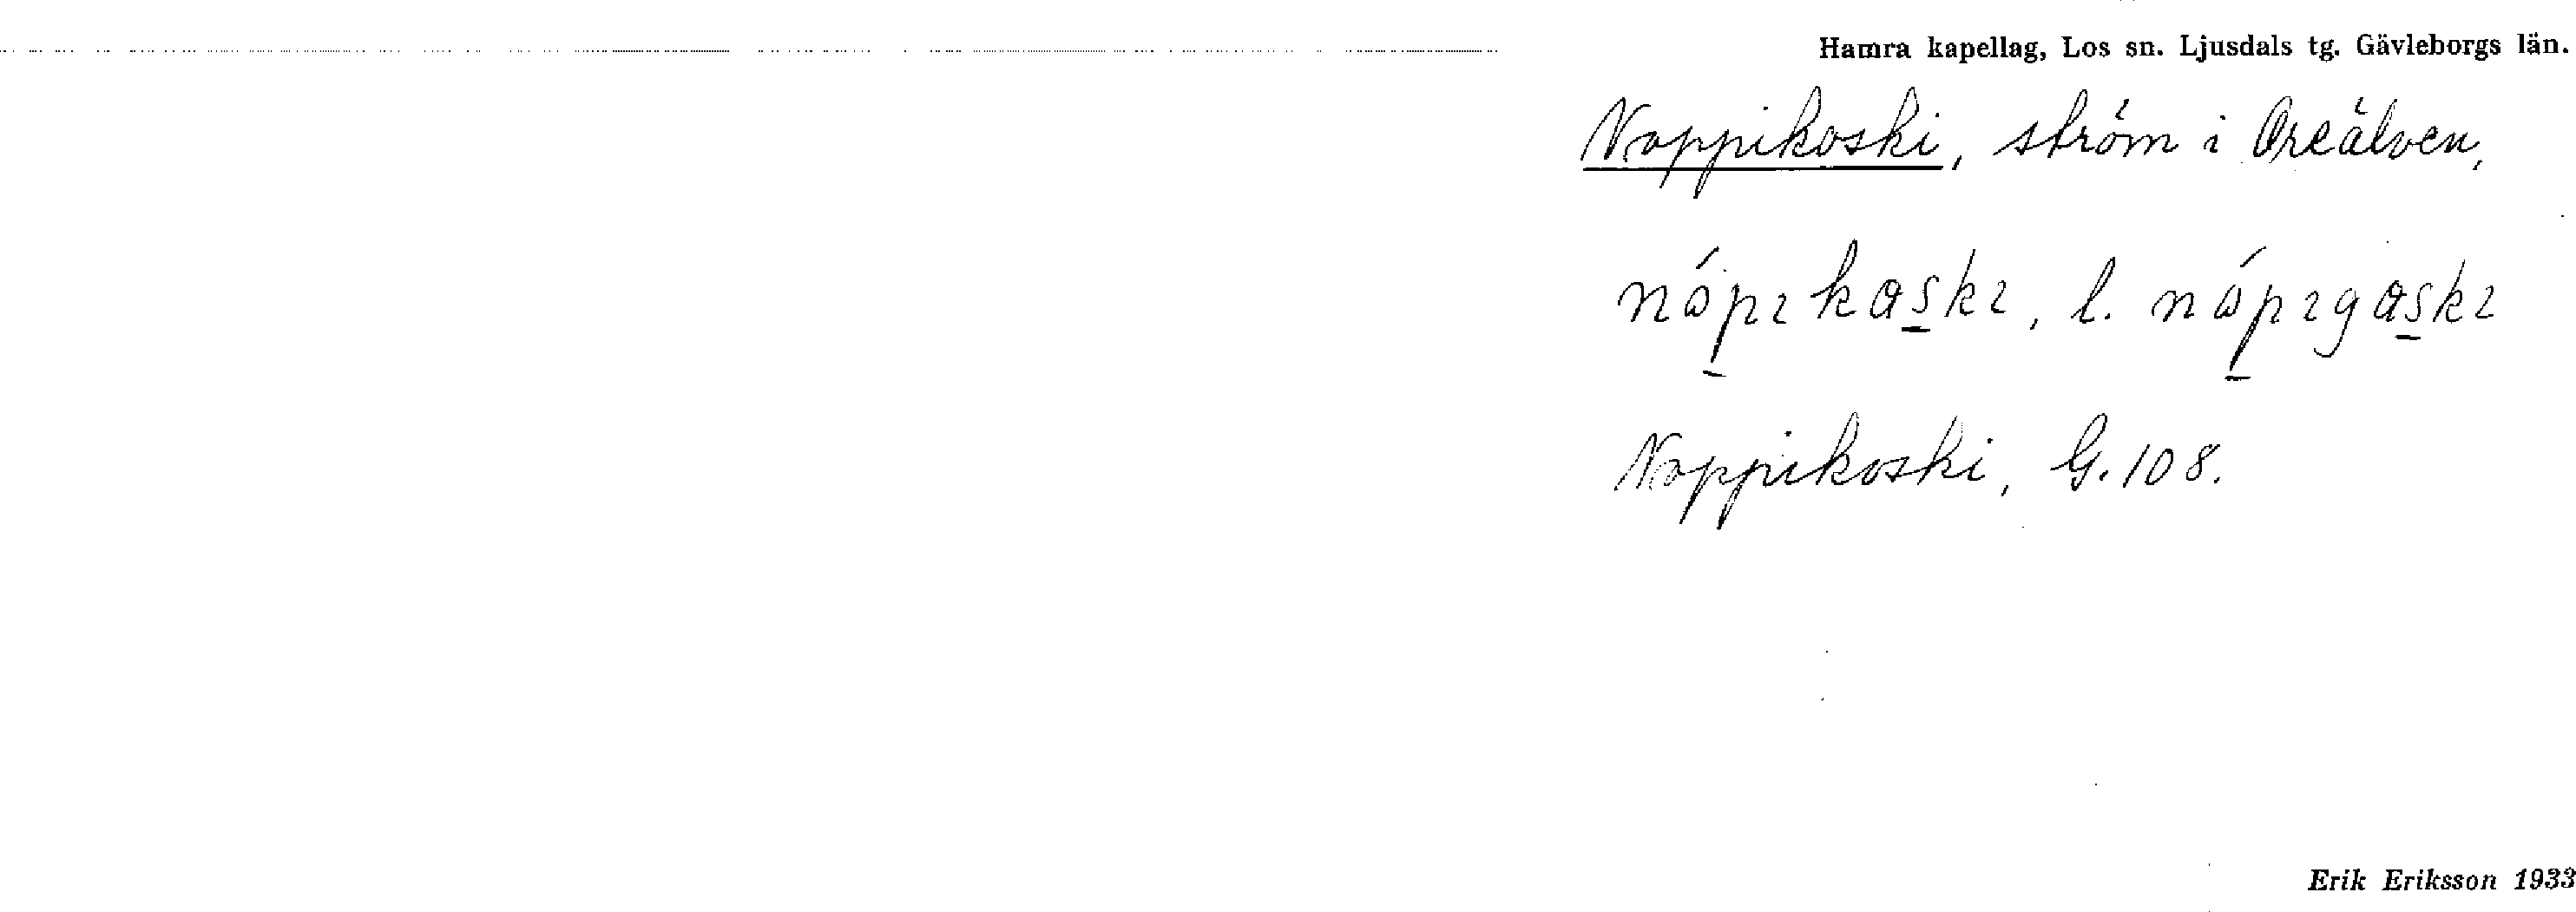 Hamra kapellag, Los sn. Ljusdals tg. Gävleborgs län.
Noppikoski, ström i Oreälven,
Noppikoski, G. 108.
Erik Eriksson 1933